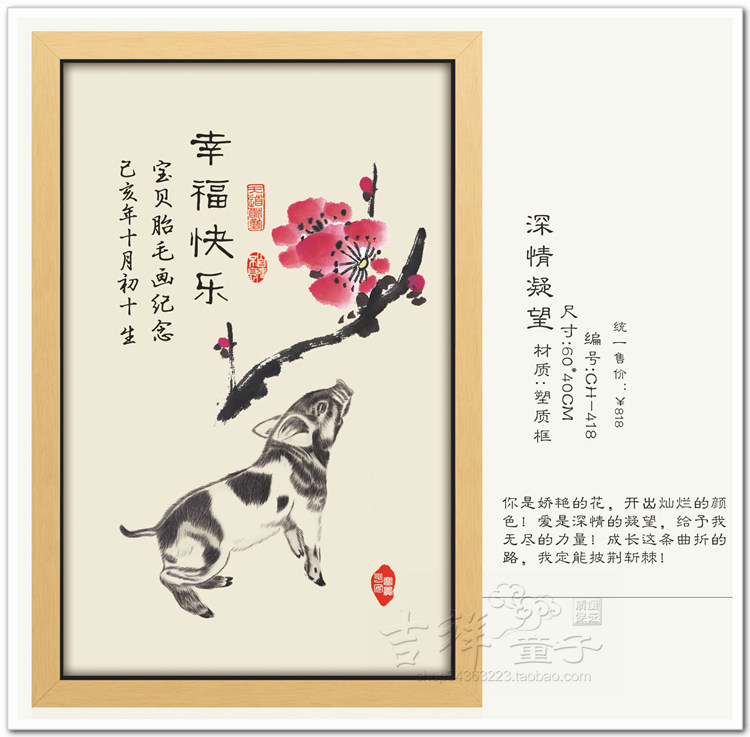 幸福快乐
宝贝胎毛画纪念
己亥年十月初十生
天道酬勤
深情凝望
尺寸:60*40CM
材质:塑质框
编号:CH-418
统一售价:￥818
你是娇艳的花，开出灿烂的颜
色！爱是深情的凝望，给予我
无尽的力量！成长这条曲折的
路，我定能披荆斩棘！
吉祥童子
质量保证